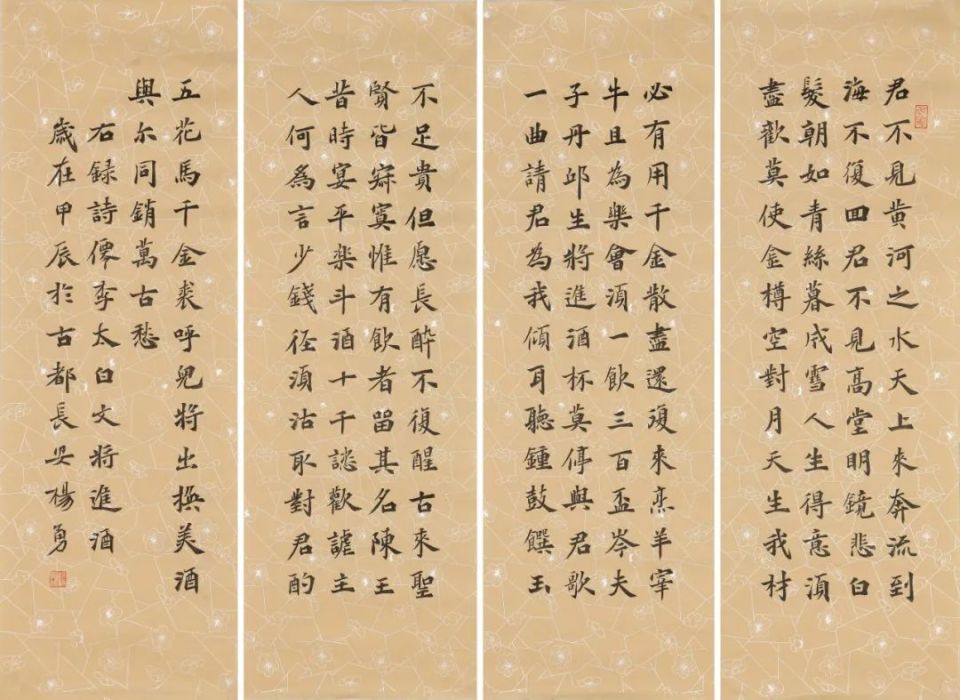 君不見黄河之水天上來奔流到
海不復回君不見高堂明鏡悲白
髮朝如青絲暮成雪人生得意須
盡歡莫使金樽空對月天生我材
必有用千金散盡還復來烹羊宰
牛且為樂會須一飲三百盃岑夫
子丹邱生將進酒杯莫停與君歌
一曲請君為我傾耳聽鍾鼓饌玉
不足貴但愿長醉不復醒古來聖
賢皆寂寞惟有飲者留其名陳王
昔時宴平樂斗酒十千恣歡謔主
人何為言少錢径須沽取對君酌
五花馬千金裘呼兒將出換美酒
與尔同銷萬古愁
右録詩僊李太白文將進酒
歲在甲辰於古都長安楊勇